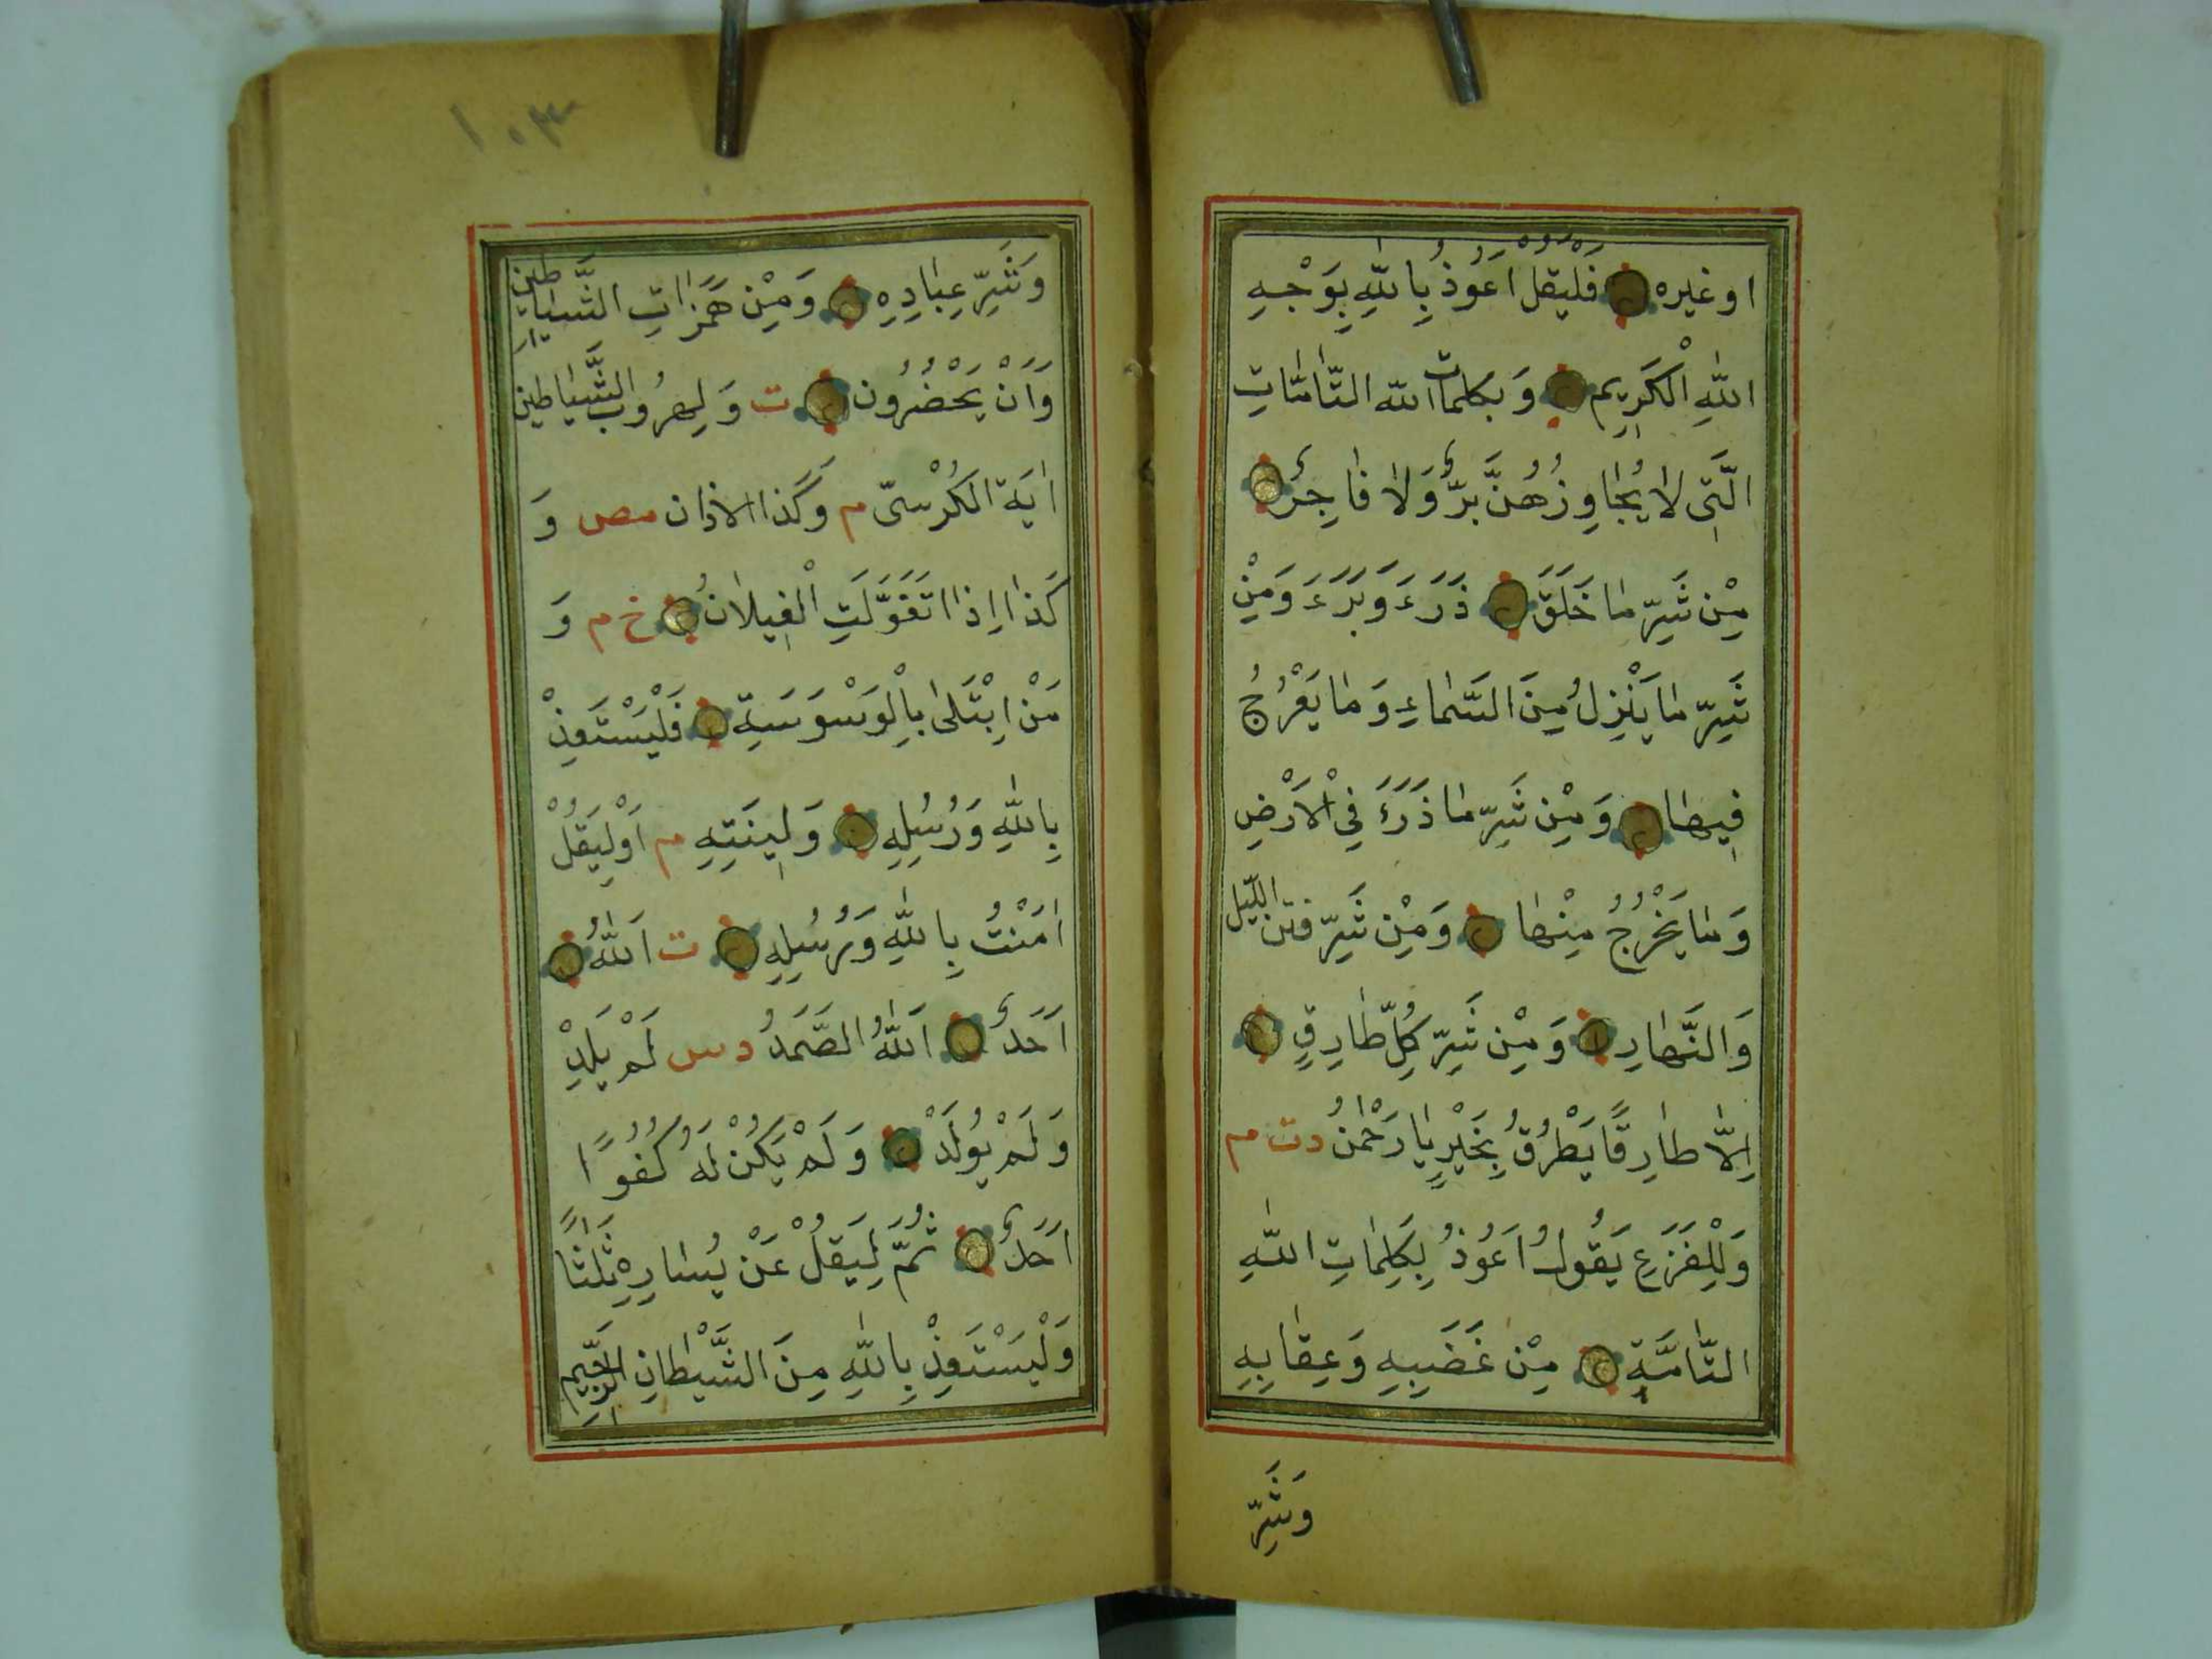 اوغيره فَلْيَقُلْ اَعُوذُ بِاللّٰهِ بِوَجْهِ
اللّٰهِ الْكَرِيمِ وَبكلمات اللّه التَّامَّاتِ
الَّتِى لَا يُجَاوِزُهُنَّ بَرٌّ وَلَا فَاجِرٌ
مِنْ شَرِّ مَا خَلَقَ ذَرَءَ وَبَرَءَ وَمِنْ
شَرِّ مَا يَنْزِلُ مِنَ السَّمَاءِ وَمَا يَعْرُجُ
فِيهَا وَمِنْ شَرِّ مَا ذَرَءَ فِى الْاَرْضِ
وَمَا يَخْرُجُ مِنْهَا وَمِنْ شَرِّ فتن اللّيل
وَالنَّهَارِ وَمِنْ شَرِّ كُلِّ طَارِقٍ
اِلَّا طَارِقًا يَطْرُقُ بِخَيْرٍ يَا رَحْمٰنُ دت م
وَلِلْفَزَعِ يَقُولُ اَعُوذُ بِكَلِمَاتِ اللّٰهِ
التَّامَّةِ مِنْ غَضَبِهِ وَعِقَابِهِ
وَشَرِّ
١٠٣
وَشَرِّ عِبَادِهِ وَمِنْ هَمَزَاتِ الشَّيَاطِينِ
وَاَنْ يَحْضُرُونِ ت وَلِهُرُوبِ الشَّيَاطِين
اٰيَة الكُرْسىّ م وَكَذا الاذان مص وَ
كَذَا اِذَا تَغَوَّلَتِ الْغِيلَانُ خ م وَ
مَنْ اِبْتَلٰى بِالْوَسْوَسَةِ فَلْيَسْتَعِذْ
بِاللّٰهِ وَرُسُلِهِ وَلِينَتِهِ م اَوْ لِيَقُلْ
اٰمَنْتُ بِاللّٰهِ وَرُسُلِهِ ت اَللّٰهُ
اَحَدٌ اَللّٰهُ الصَّمَدُ دس لَمْ يَلِدْ
وَلَمْ يُولَدْ وَلَمْ يَكُنْ لَهُ كُفُوًا
اَحَدٌ ثُمَّ لِيَقُلْ عَنْ يُسَارِهِ ثَلٰثًا
وَلْيَسْتَعِذْ بِاللّٰهِ مِنَ الشَّيْطَانِ الرَّجِيمِ